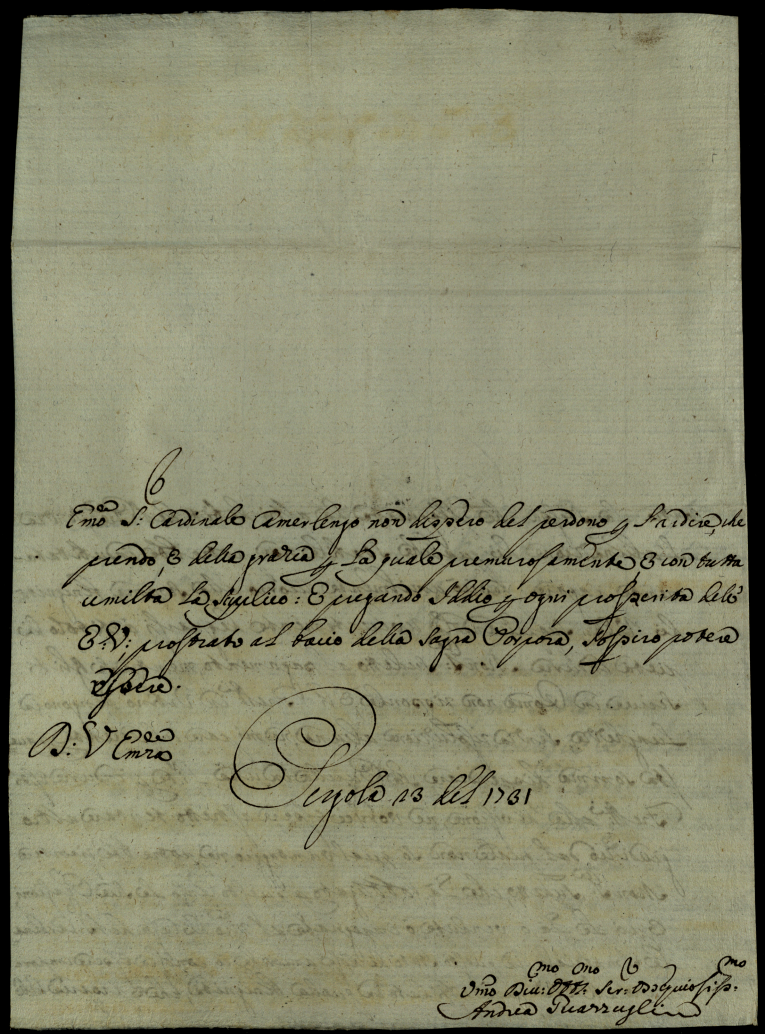 Emõ Sr: Cardinale Camerlengo non dispero del perdono p l'ardire, che
prendo, e della grazia p la quale premurosamente e con tutta
umiltà la supplico: E pregando Iddio p ogni prosperità dell'
E: V: prostrato al bacio della Sagra Porpora, sospiro potere
essere.
D: V Emza
Pergola 13 del 1731
Vmo Diu:mo Obb:mo Ser:e Ossequiosiss:mo
Andrea